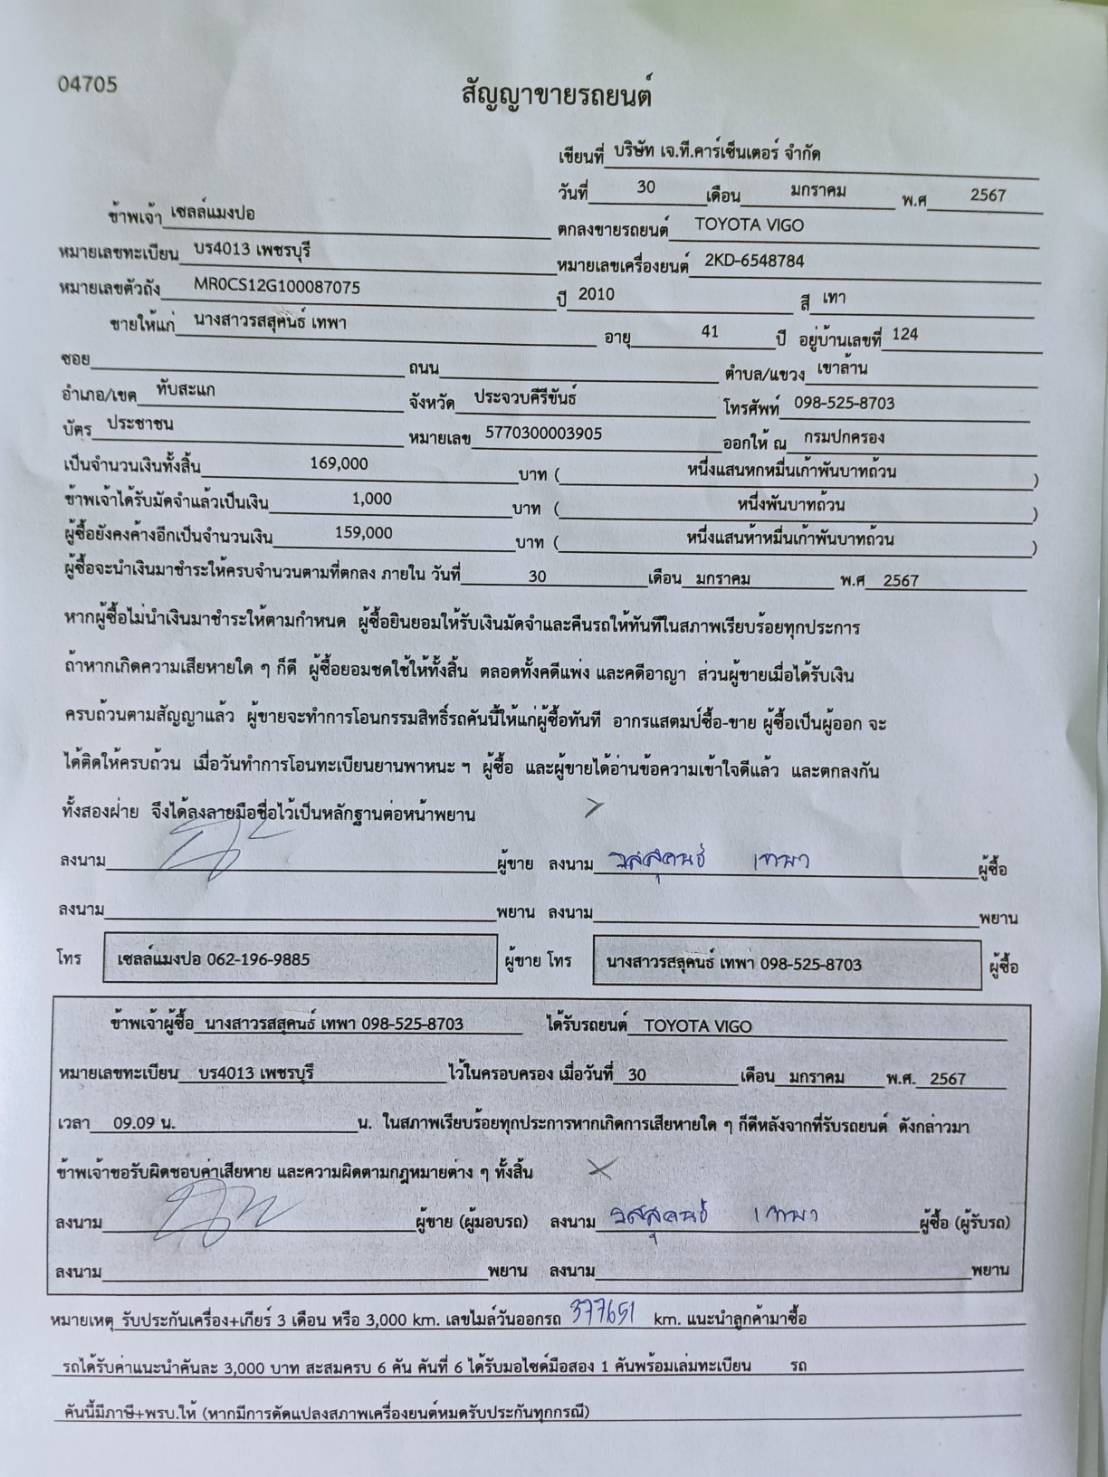 04705
สัญญาขายรถยนต์
เขียนที่ บริษัท เจ.ที.คาร์เซ็นเตอร์ จำกัด
วันที่ 30 เดือน มกราคม พ.ศ 2567
ข้าพเจ้า เซลล์แมงปอ ตกลงขายรถยนต์ TOYOTA VIGO
หมายเลขทะเบียน บร4013 เพชรบุรี หมายเลขเครื่องยนต์ 2KD-6548784
หมายเลขตัวถัง MR0CS12G100087075 ปี 2010 สี เทา
ขายให้แก่ นางสาวรสสุคนธ์ เทพา อายุ 41 ปี อยู่บ้านเลขที่ 124
ซอย ถนน ตำบล/แขวง เขาล้าน
อำเภอ/เขต ทับสะแก จังหวัด ประจวบคีรีขันธ์ โทรศัพท์ 098-525-8703
บัตร ประชาชน หมายเลข 5770300003905 ออกให้ ณ กรมปกครอง
เป็นจำนวนเงินทั้งสิ้น 169,000 บาท ( หนึ่งแสนหกหมื่นเก้าพันบาทถ้วน )
ข้าพเจ้าได้รับมัดจำแล้วเป็นเงิน 1,000 บาท ( หนึ่งพันบาทถ้วน )
ผู้ซื้อยังคงค้างอีกเป็นจำนวนเงิน 159,000 บาท ( หนึ่งแสนห้าหมื่นเก้าพันบาทถ้วน )
ผู้ซื้อจะนำเงินมาชำระให้ครบจำนวนตามที่ตกลง ภายใน วันที่ 30 เดือน มกราคม พ.ศ 2567
หากผู้ซื้อไม่นำเงินมาชำระให้ตามกำหนด ผู้ซื้อยินยอมให้รับเงินมัดจำและคืนรถให้ทันทีในสภาพเรียบร้อยทุกประการ
ถ้าหากเกิดความเสียหายใด ๆ ก็ดี ผู้ซื้อยอมชดใช้ให้ทั้งสิ้น ตลอดทั้งคดีแพ่ง และคดีอาญา ส่วนผู้ขายเมื่อได้รับเงิน
ครบถ้วนตามสัญญาแล้ว ผู้ขายจะทำการโอนกรรมสิทธิ์รถคันนี้ให้แก่ผู้ซื้อทันที อากรแสตมป์ซื้อ-ขาย ผู้ซื้อเป็นผู้ออก จะ
ได้ติดให้ครบถ้วน เมื่อวันทำการโอนทะเบียนยานพาหนะ ฯ ผู้ซื้อ และผู้ขายได้อ่านข้อความเข้าใจดีแล้ว และตกลงกัน
ทั้งสองฝ่าย จึงได้ลงลายมือชื่อไว้เป็นหลักฐานต่อหน้าพยาน
ลงนาม ผู้ขาย ลงนาม รสสุคนธ์ เทพา ผู้ซื้อ
ลงนาม พยาน ลงนาม พยาน
โทร เซลล์แมงปอ 062-196-9885 ผู้ขาย โทร นางสาวรสสุคนธ์ เทพา 098-525-8703 ผู้ซื้อ
ข้าพเจ้าผู้ซื้อ นางสาวรสสุคนธ์ เทพา 098-525-8703 ได้รับรถยนต์ TOYOTA VIGO
หมายเลขทะเบียน บร4013 เพชรบุรี ไว้ในครอบครอง เมื่อวันที่ 30 เดือน มกราคม พ.ศ. 2567
เวลา 09.09 น. น. ในสภาพเรียบร้อยทุกประการหากเกิดการเสียหายใด ๆ ก็ดีหลังจากที่รับรถยนต์ ดังกล่าวมา
ข้าพเจ้าขอรับผิดชอบค่าเสียหาย และความผิดตามกฎหมายต่าง ๆ ทั้งสิ้น
ลงนาม ผู้ขาย (ผู้มอบรถ) ลงนาม รสสุคนธ์ เทพา ผู้ซื้อ (ผู้รับรถ)
ลงนาม พยาน ลงนาม พยาน
หมายเหตุ รับประกันเครื่อง+เกียร์ 3 เดือน หรือ 3,000 km. เลขไมล์วันออกรถ 377651 km. แนะนำลูกค้ามาซื้อ
รถได้รับค่าแนะนำคันละ 3,000 บาท สะสมครบ 6 คัน คันที่ 6 ได้รับมอไซด์มือสอง 1 คันพร้อมเล่มทะเบียน รถ
คันนี้มีภาษี+พรบ.ให้ (หากมีการดัดแปลงสภาพเครื่องยนต์หมดรับประกันทุกกรณี)